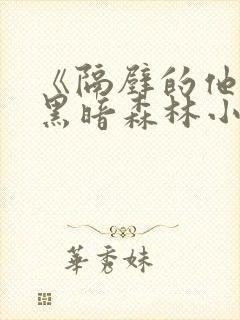 《隔壁的他
黑暗森林小
華秀妹